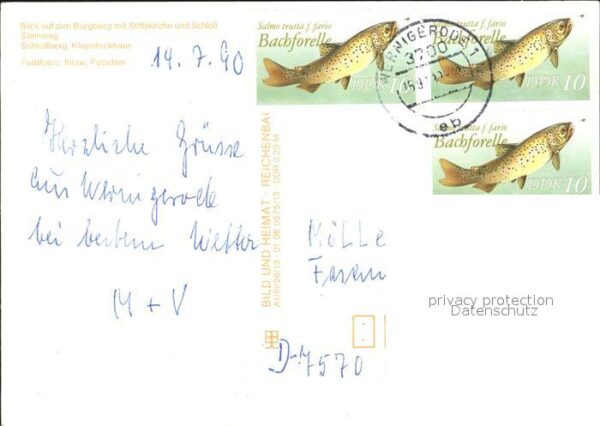 Blick auf den Burgberg mit Stiftskirche und Schloß
Steinweg
Schloßberg, Klopstockhaus
Farbfotos: Ihlow, Potsdam
14.7.90
Herzliche Grüsse
aus Wernigerode
bei bestem Wetter
M + V
BILD UND HEIMAT · REICHENBA
A1/III/26/13 01 08 0575/13 · DDR 0,20 M
Salmo trutta f. fario
Bachforelle
DDR 10
Salmo trutta f. fario
Bachforelle
DDR 10
Salmo trutta f. fario
Bachforelle
DDR 10
WERNIGERODE 1
3700
eb
Mölle
D-7570
privacy protection
Datenschutz